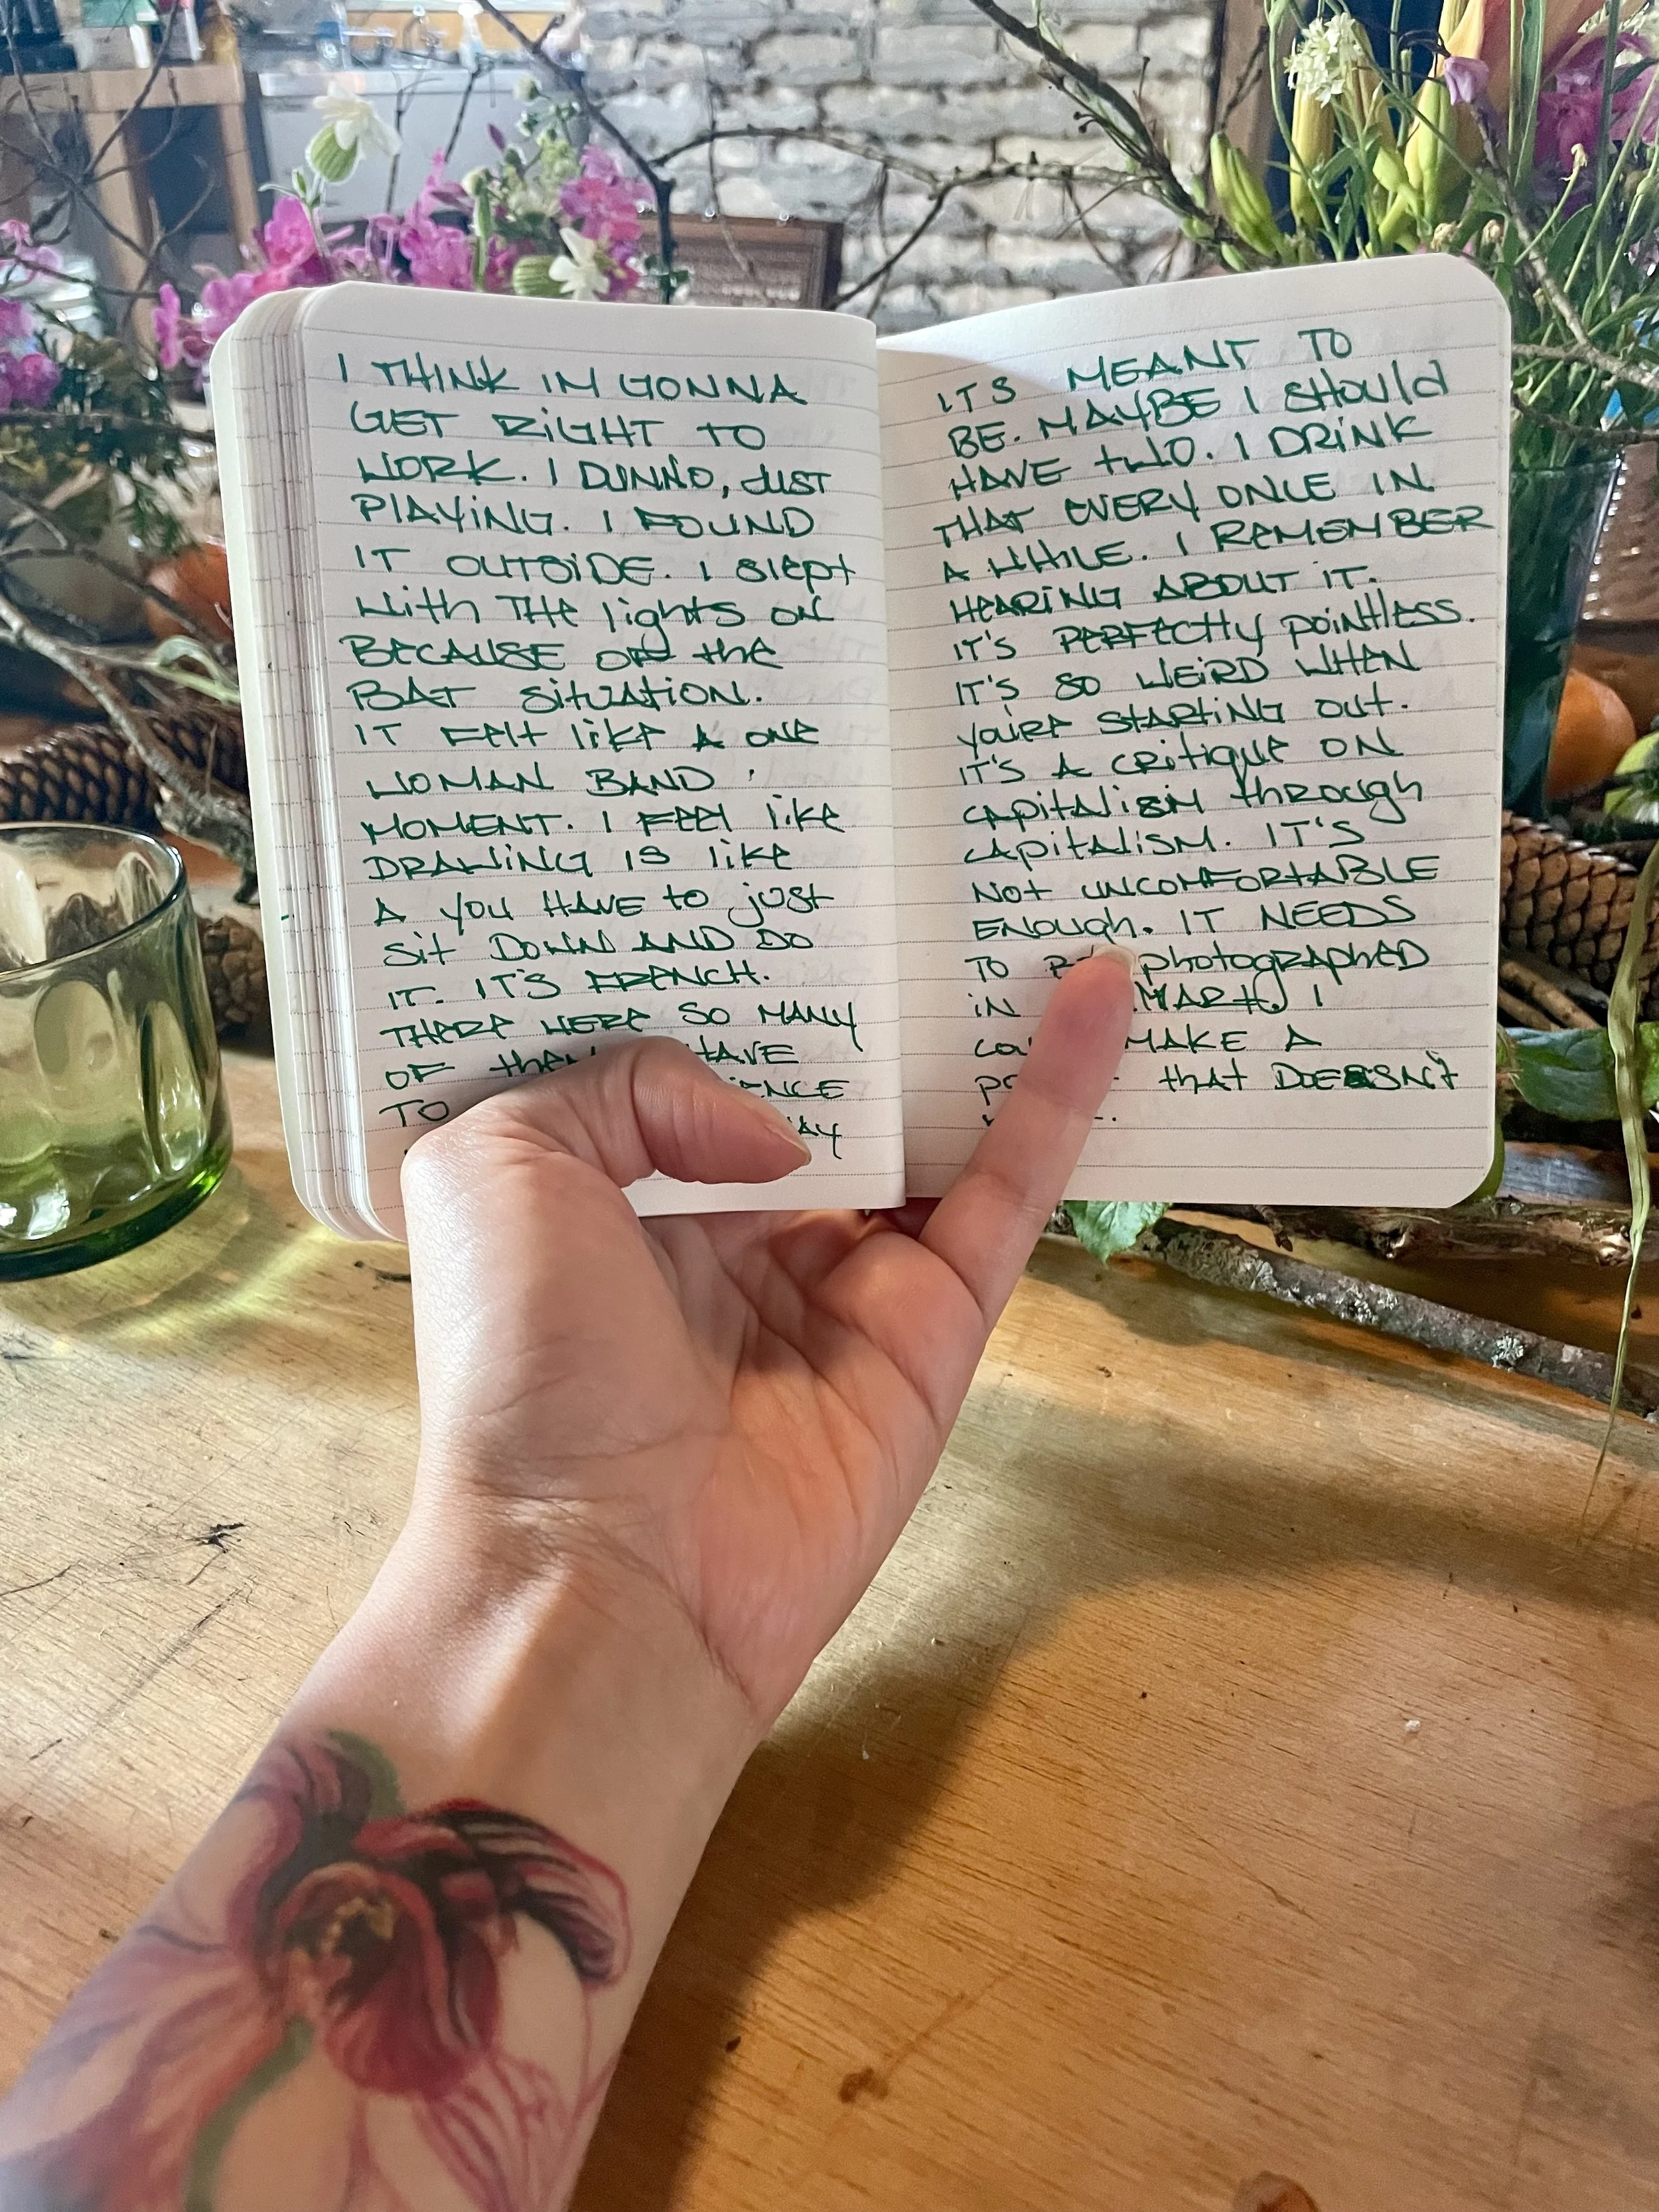 I THINK IM GONNA
GET RIGHT TO
WORK. I DUNNO, JUST
PLAYING. I FOUND
IT OUTSIDE. I slept
With THE lights ON
BECAUSE OF the
BAT situation.
IT Felt like A one
WOMAN BAND
MOMENT. I FEEl like
DRAWING IS like
A you HAVE to just
sit DOWN AND DO
IT. IT'S FRENCH.
THERE WERE SO MANY
OF HAVE
TO
ITS MEANT TO
BE. MAYBE I SHould
HAVE tWO. I DRINK
THAT EVERY ONCE IN
A WHILE. I REMEMBER
HEARING ABOUT IT.
IT'S PERFECtly pointless.
IT'S SO WEIRD WHEN
you'RE STARTING OUT.
IT'S A CRitique ON
capitalism through
capitalism. IT'S
Not UNCOMFORTABLE
ENough. IT NEEDS
TO photographed
iN
MAKE A
that DOESN't